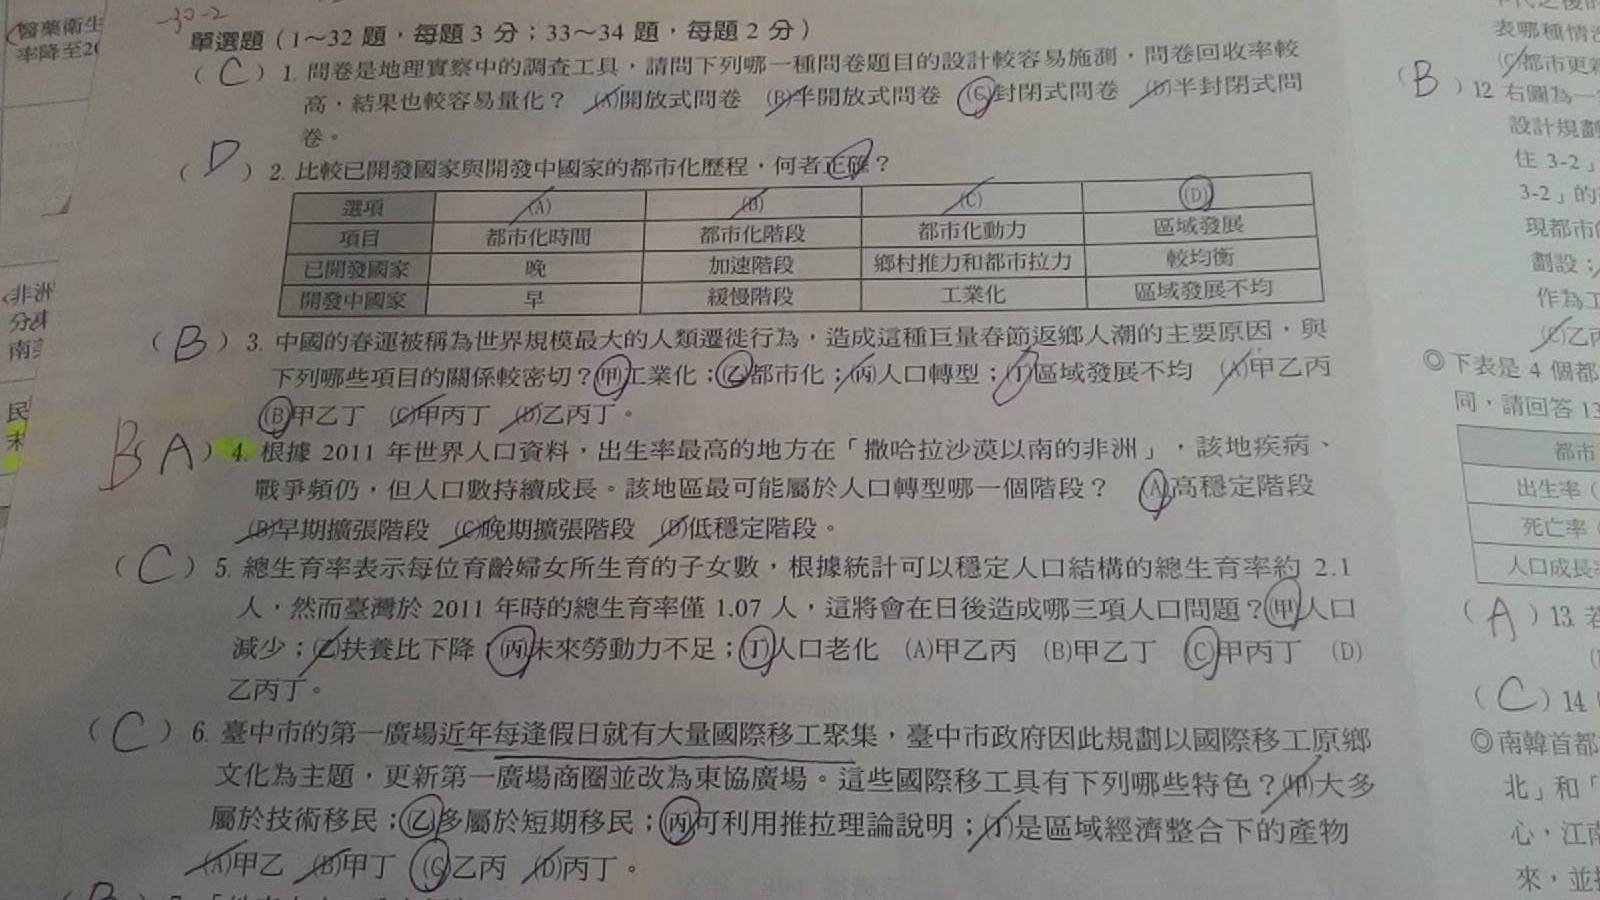 -30-2
醫藥衛生
率降至20
非洲
分
南
民
未
單選題（1～32 題，每題 3 分；33～34 題，每題 2 分）
（ C ）1. 問卷是地理實察中的調查工具，請問下列哪一種問卷題目的設計較容易施測，問卷回收率較
高，結果也較容易量化？ (A)開放式問卷 (B)半開放式問卷 (C)封閉式問卷 (D)半封閉式問
卷。
（ D ）2. 比較已開發國家與開發中國家的都市化歷程，何者正確？
選項 (A) (B) (C) (D)
項目 都市化時間 都市化階段 都市化動力 區域發展
已開發國家 晚 加速階段 鄉村推力和都市拉力 較均衡
開發中國家 早 緩慢階段 工業化 區域發展不均
（ B ）3. 中國的春運被稱為世界規模最大的人類遷徙行為，造成這種巨量春節返鄉人潮的主要原因，與
下列哪些項目的關係較密切？(甲)工業化；(乙)都市化；(丙)人口轉型；(丁)區域發展不均 (A)甲乙丙
(B)甲乙丁 (C)甲丙丁 (D)乙丙丁。
B A ）4. 根據 2011 年世界人口資料，出生率最高的地方在「撒哈拉沙漠以南的非洲」，該地疾病、
戰爭頻仍，但人口數持續成長。該地區最可能屬於人口轉型哪一個階段？ (A)高穩定階段
(B)早期擴張階段 (C)晚期擴張階段 (D)低穩定階段。
（ C ）5. 總生育率表示每位育齡婦女所生育的子女數，根據統計可以穩定人口結構的總生育率約 2.1
人，然而臺灣於 2011 年時的總生育率僅 1.07 人，這將會在日後造成哪三項人口問題？(甲)人口
減少；(乙)扶養比下降；(丙)未來勞動力不足；(丁)人口老化 (A)甲乙丙 (B)甲乙丁 (C)甲丙丁 (D)
乙丙丁。
（ C ）6. 臺中市的第一廣場近年每逢假日就有大量國際移工聚集，臺中市政府因此規劃以國際移工原鄉
文化為主題，更新第一廣場商圈並改為東協廣場。這些國際移工具有下列哪些特色？(甲)大多
屬於技術移民；(乙)多屬於短期移民；(丙)可利用推拉理論說明；(丁)是區域經濟整合下的產物
(A)甲乙 (B)甲丁 (C)乙丙 (D)丙丁。
表哪種情
(C)都市更新
（ B ）12 右圖為一
設計規劃
住 3-2」
3-2」的
現都市
劃設；
作為工
(C)乙丙
◎下表是 4 個都
同，請回答 13
都市
出生率（
死亡率（
人口成長
（ A ）13. 若
（ C ）14
◎南韓首都
北」和「
心，江南
來，並